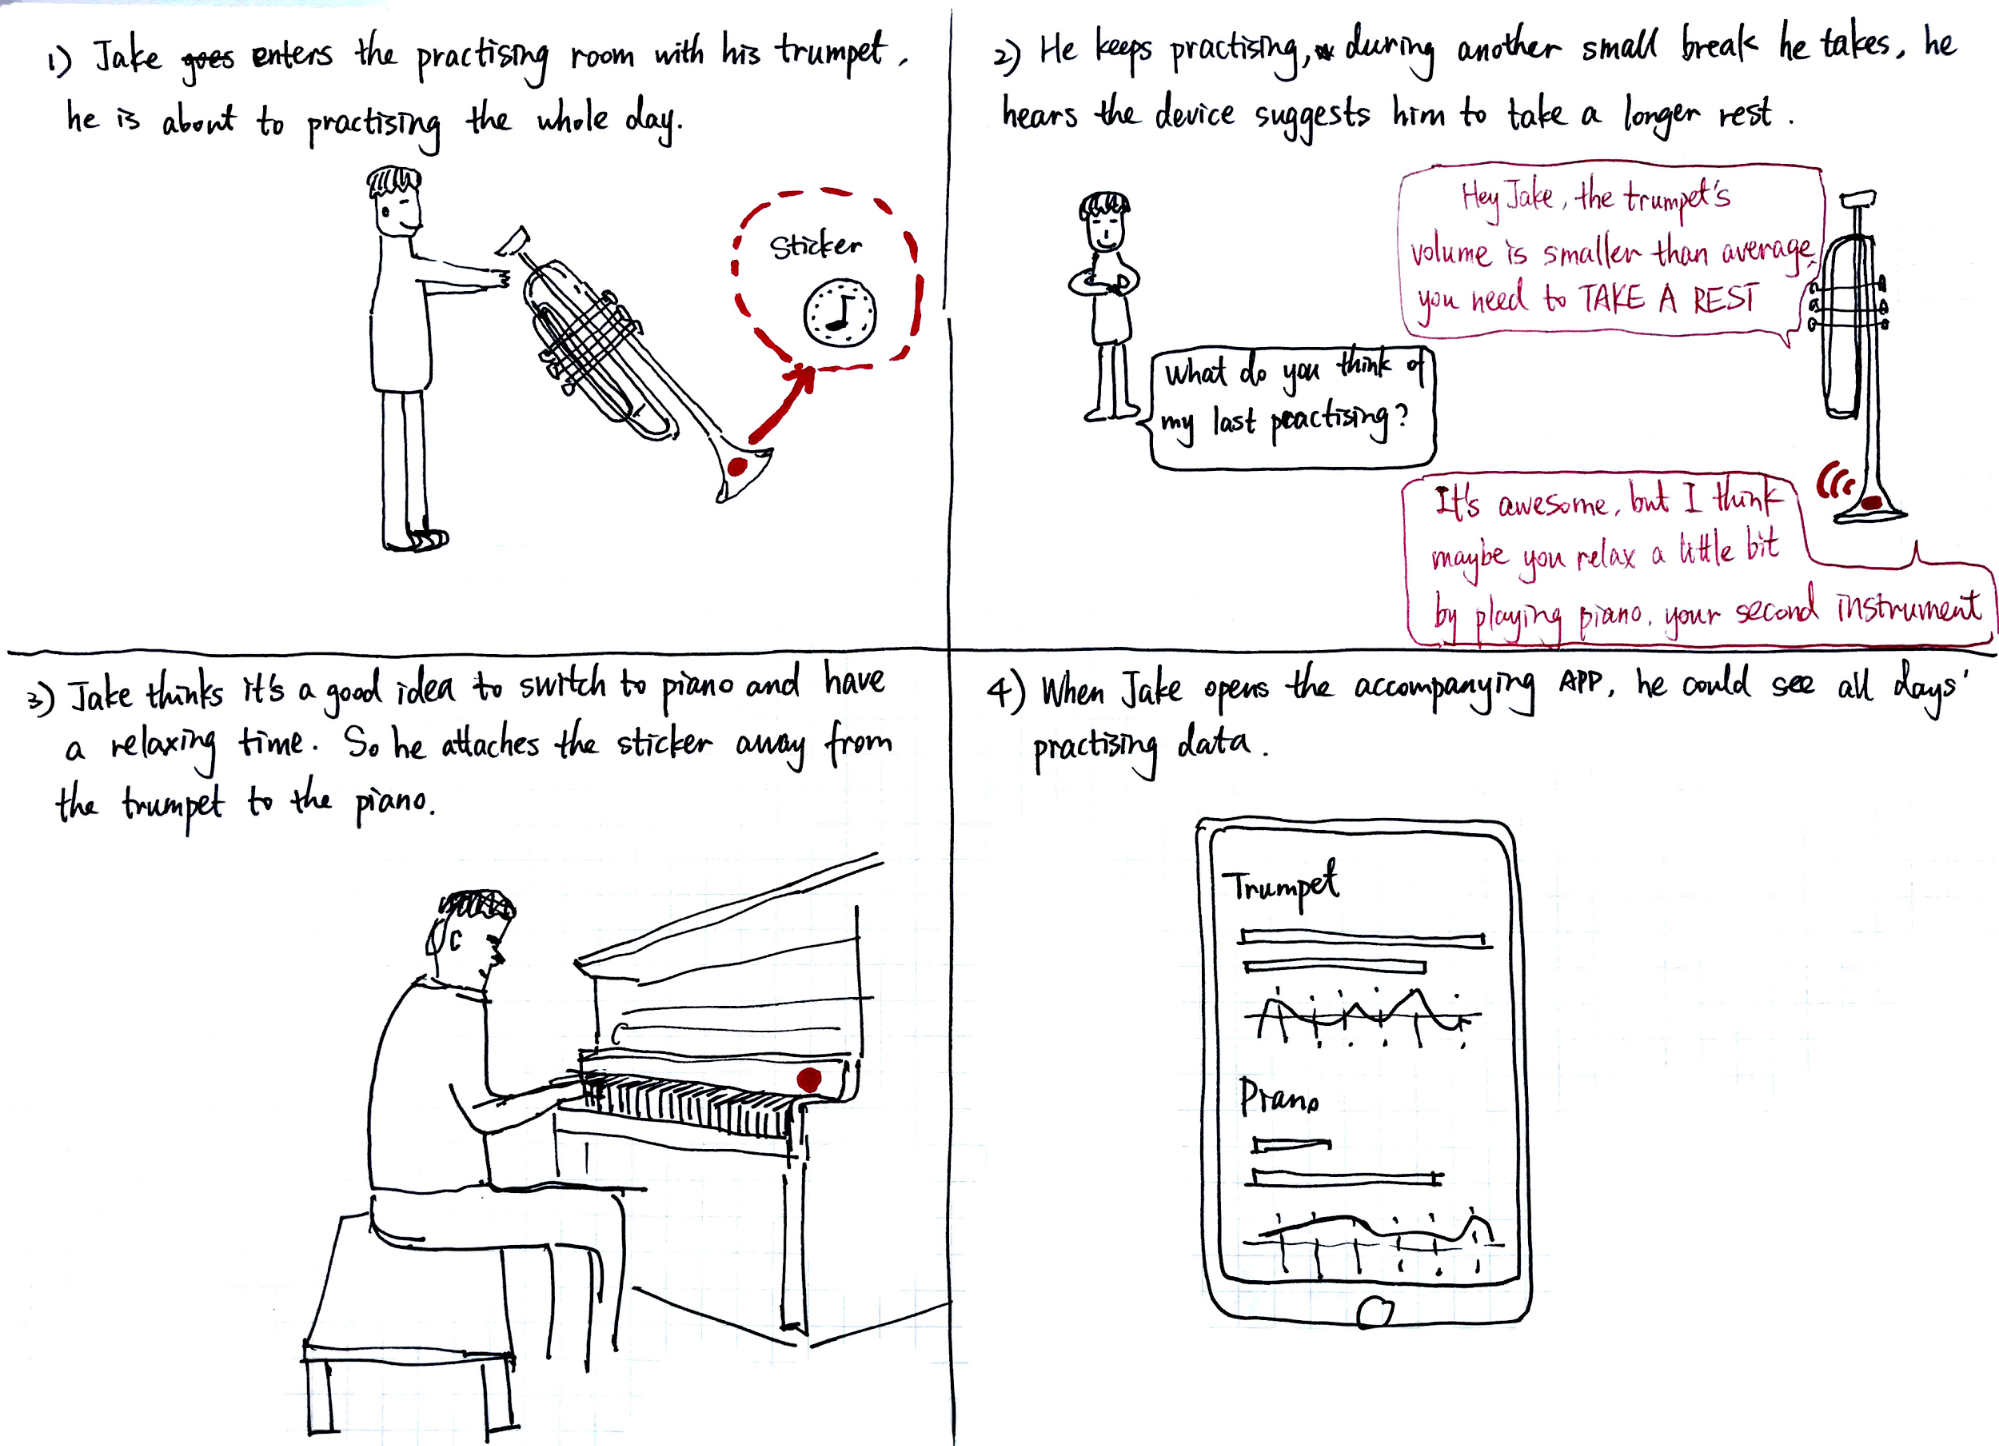 1) Jake goes enters the practising room with his trumpet,
he is about to practising the whole day.
Sticker
2) He keeps practising, during another small break he takes, he
hears the device suggests him to take a longer rest.
Hey Jake, the trumpet's
volume is smaller than average,
you need to TAKE A REST
What do you think of
my last practising?
It's awesome, but I think
maybe you relax a little bit
by playing piano, your second instrument
3) Jake thinks it's a good idea to switch to piano and have
a relaxing time. So he attaches the sticker away from
the trumpet to the piano.
4) When Jake opens the accompanying APP, he could see all days'
practising data.
Trumpet
Piano